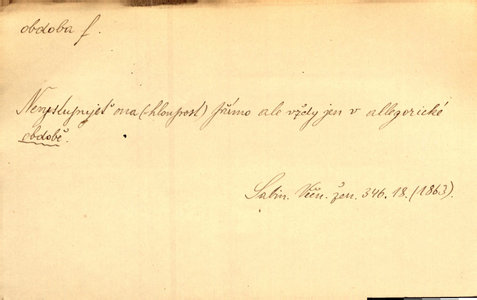 obdoba f.
Nevystupujeť ona (hloupost) přímo ale vždy jen v allegorické
obdobě.
Sabin. Věn. žen. 346. 18. (1863).